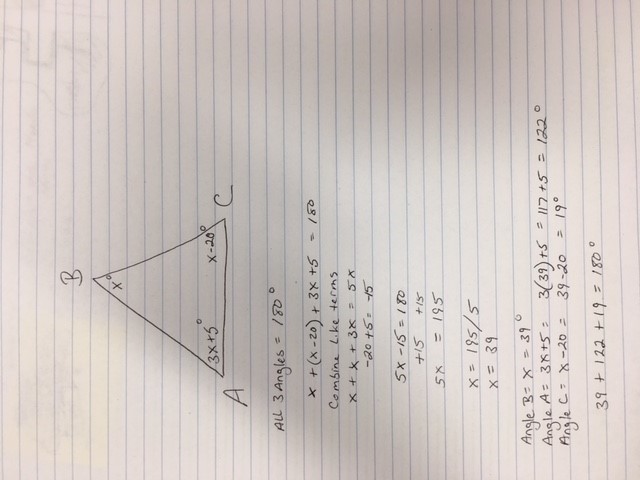 B
x°
3x+5°
x-20°
A
C
ALL 3 Angles = 180°
x + (x-20) + 3x+5 = 180
Combine Like terms
x + x + 3x = 5x
-20+5 = -15
5x-15=180
+15 +15
5x = 195
x = 195/5
x = 39
Angle B = x = 39°
Angle A = 3x+5 = 3(39)+5 = 117+5 = 122°
Angle C = x-20 = 39-20 = 19°
39 + 122 + 19 = 180°